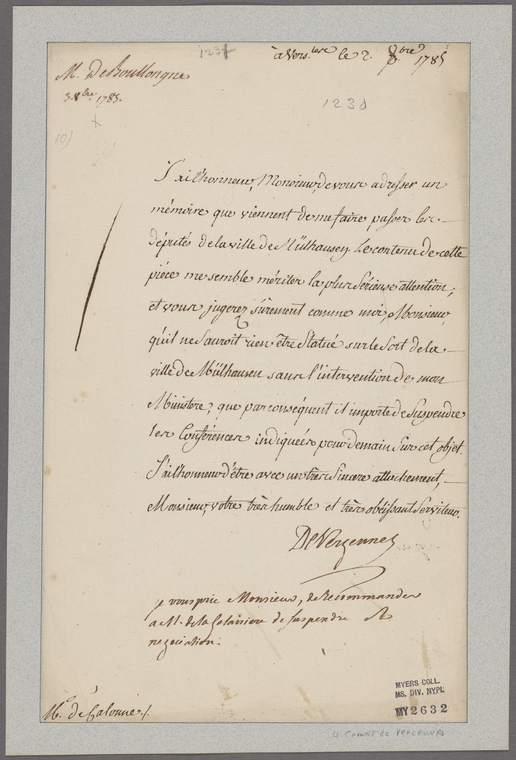 1237
à Vers.les le 2. 8bre 1785
M. De Boullongne
3. 8bre 1785.
1230
10)
J'ai l'honneur, Monsieur, de vous adresser un
mémoire que viennent de me faire passer les
députés de la ville de Mülhausen. Le contenu de cette
piéce me semble mériter la plus sérieuse attention;
et vous jugerez sûrement comme moi, Monsieur,
qu'il ne sauroit rien être statué sur le sort de la
ville de Mülhausen sans l'intervention de mon
Ministere, que par conséquent il importe de suspendre
les Conférences indiquées pour demain sur cet objet.
J'ai l'honneur d'être avec un très sincere attachement,
Monsieur, votre très humble et très obéissant Serviteur.
De Vergennes
je vous prie Monsieur, de Recommander
a M. de la Galaisiere de suspendre
negociation.
M. de Calonne
MYERS COLL.
MS. DIV. N.Y.P.L.
MY 2632
le Comte de Vergennes